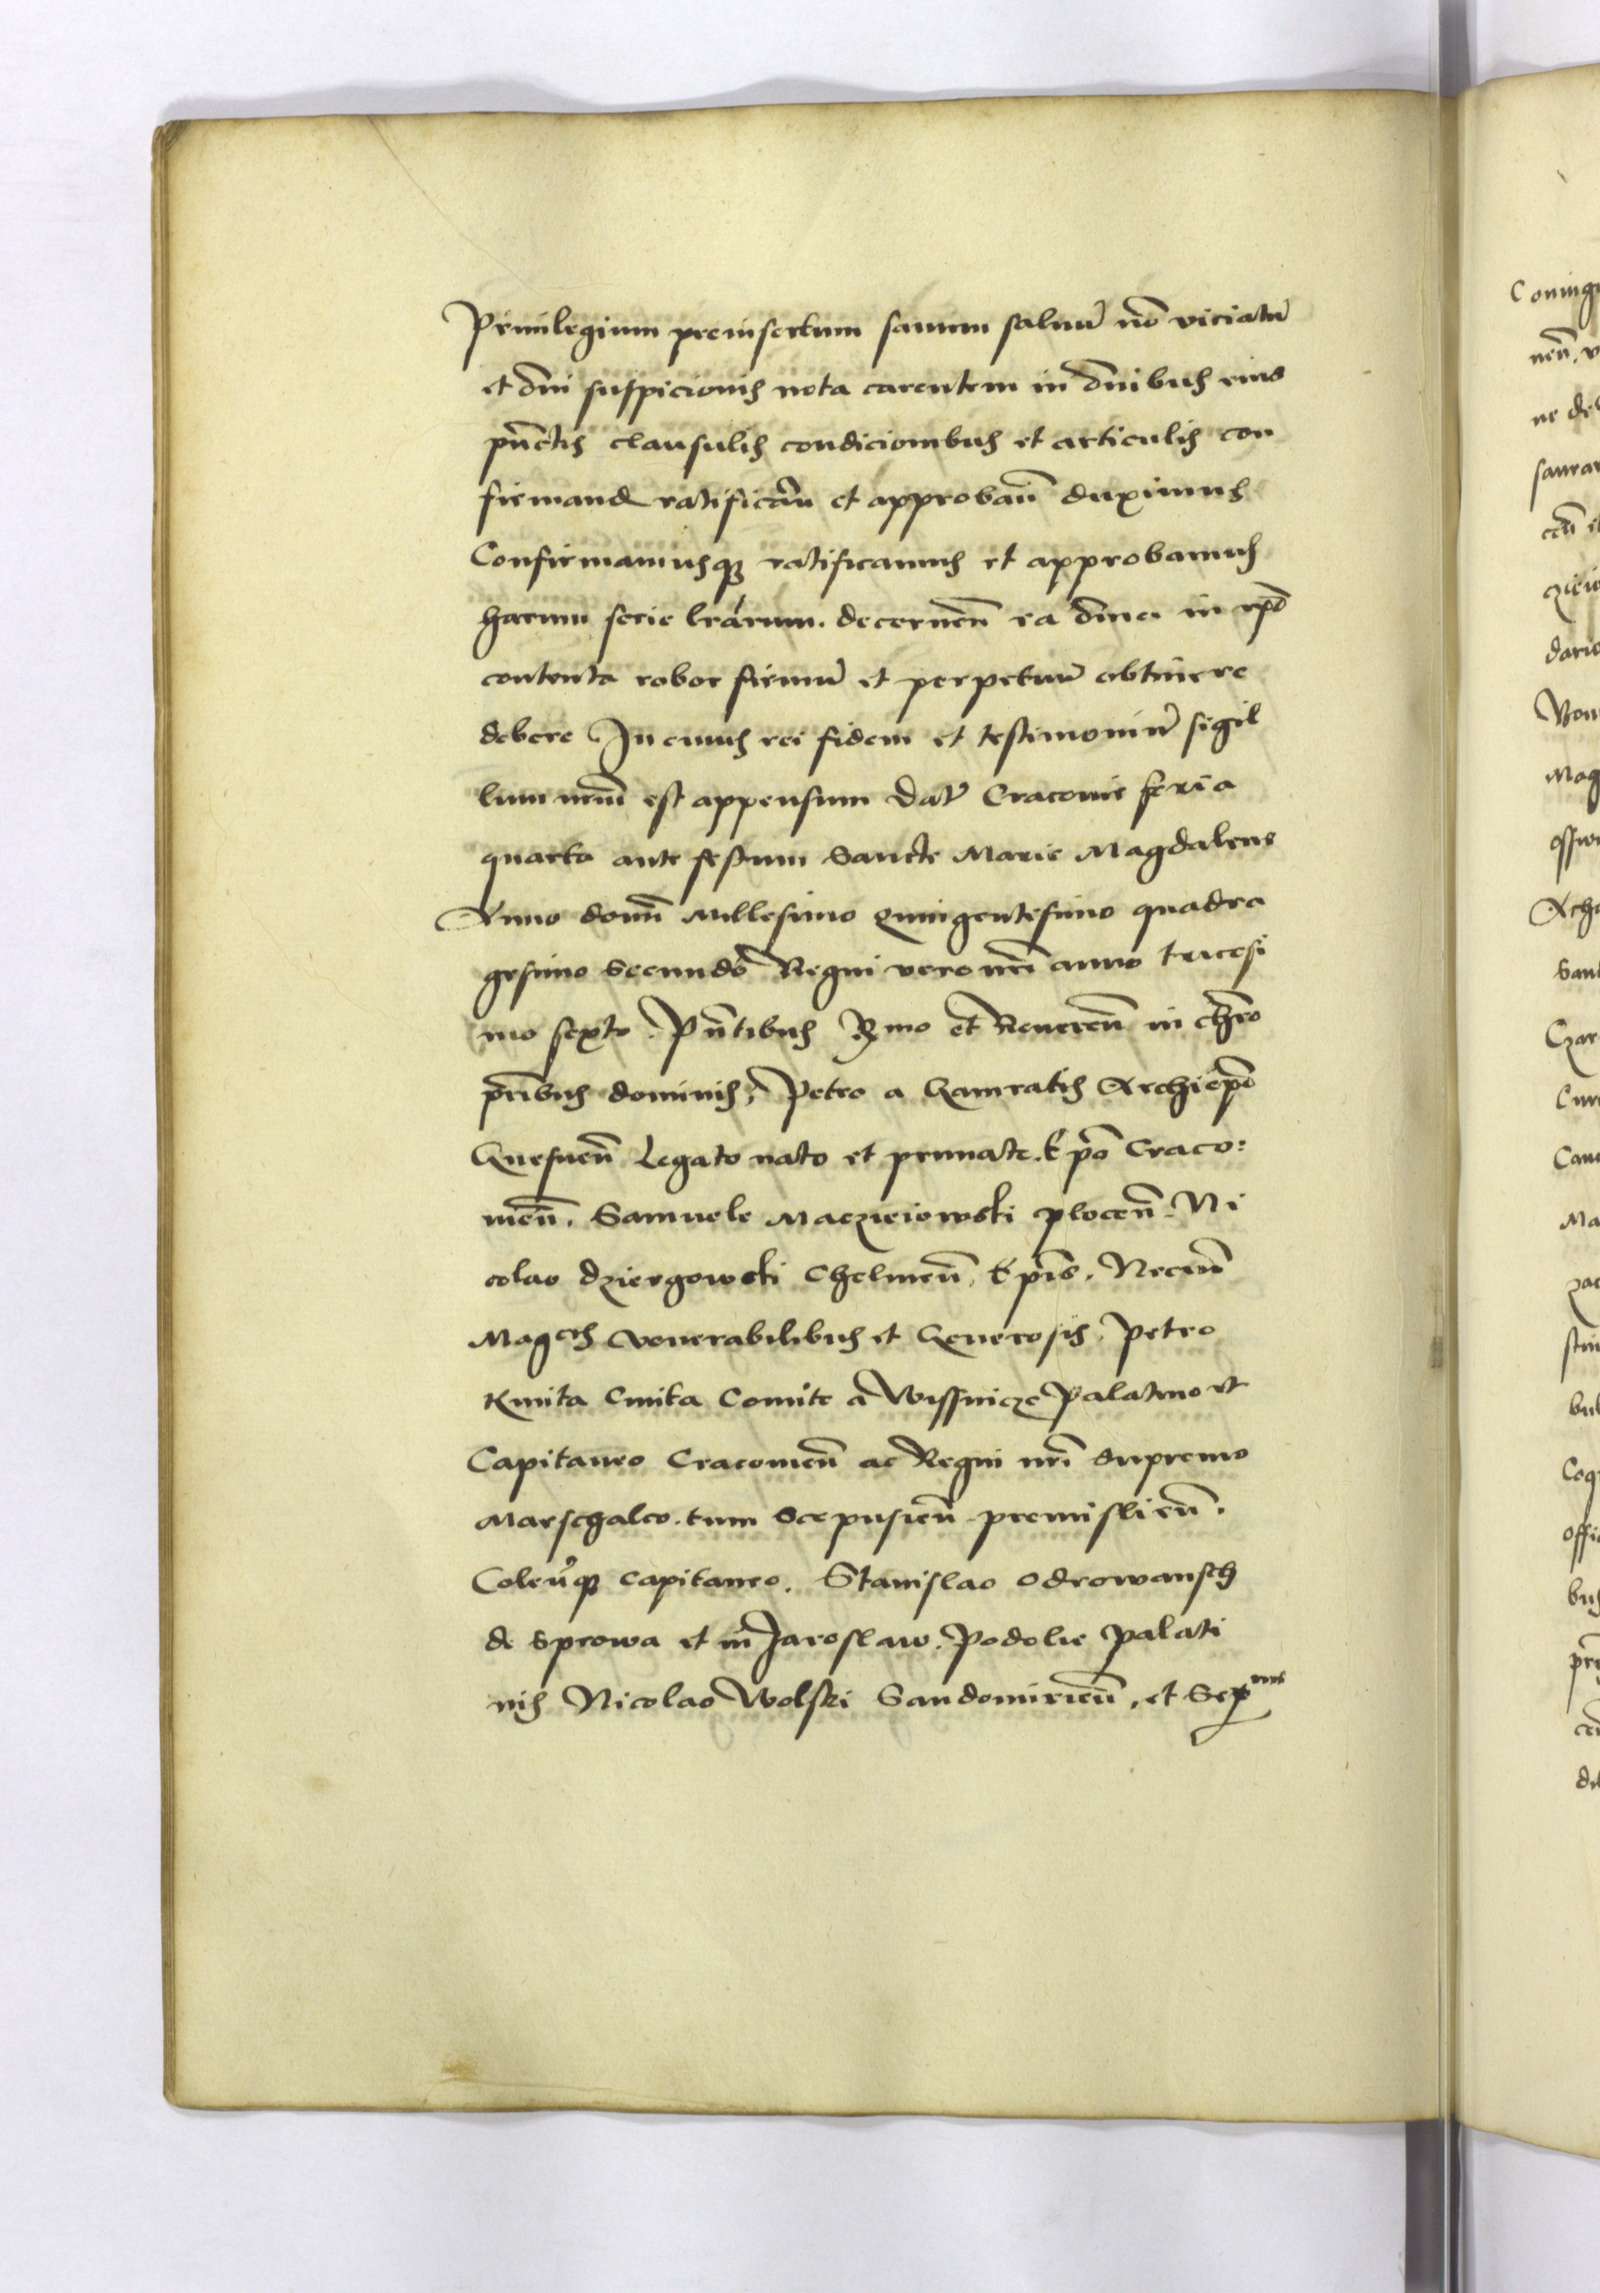 Privilegium preinsertum sanum saluũ nõ viciatũ
et õni suspicionis nota carentem in õnibus eius
pũctis clausulis condicionibus et articulis con
firmand ratificãn et approbañ duximus
Confirmamusqȝ ratificamus et approbamus
harum serie lrãrum. decerneñ ea õnia in ip̃o
contenta robor firmũ et perpetuũ obtinere
debere In cuius rei fidem et testimoniũ sigil
lum nrm̃ est appensum Dat̃ Cracovie feria
quarta ante festum Sancte Marie Magdalene
Anno domĩ Millesimo Quingentesimo quadra
gesimo Secundo Regni vero nrĩ anno tricesi
mo sexto. Pñtibus Rmo et Reuereñ in chrõ
prĩbus dominis, Petro a Gamratis Archiep̃o
Gnesneñ Legato nato et primate. Ep̃o Craco:
uieñ. Samuele Maczieiowski Ploceñ. Ni
colao Dziergowski Chelmeñ. Ep̃is. Necnõ
Magcis Venerabilibus et Generosis. Petro
Kmita Cmita Comite a Wissnicze Palatino et
Capitaneo Cracouieñ ac Regni nrĩ Supremo
Marschalco. tum Scepusieñ premislieñ.
Coleñqȝ capitaneo. Stanislao Odrowansch
de Sprowa et in Jaroslaw. Podolie Palati
nis Nicolao Wolski Sandomirieñ. et Ser